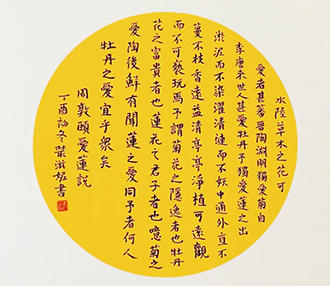 水陸草木之花可
愛者甚蕃晉陶淵明獨愛菊自
李唐來世人甚愛牡丹予獨愛蓮之出
淤泥而不染濯清漣而不妖中通外直不
蔓不枝香遠益清亭亭淨植可遠觀
而不可褻玩焉予謂菊花之隱逸者也牡丹
花之富貴者也蓮花之君子者也噫菊之
愛陶後鮮有聞蓮之愛同予者何人
牡丹之愛宜乎衆矣
周敦頤愛蓮説
丁酉初冬書